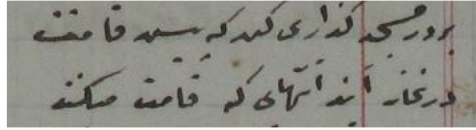 بر در مسجد گذاری کن که پیش قامتت
در نماز آیند آنهایی که قامت میکنند